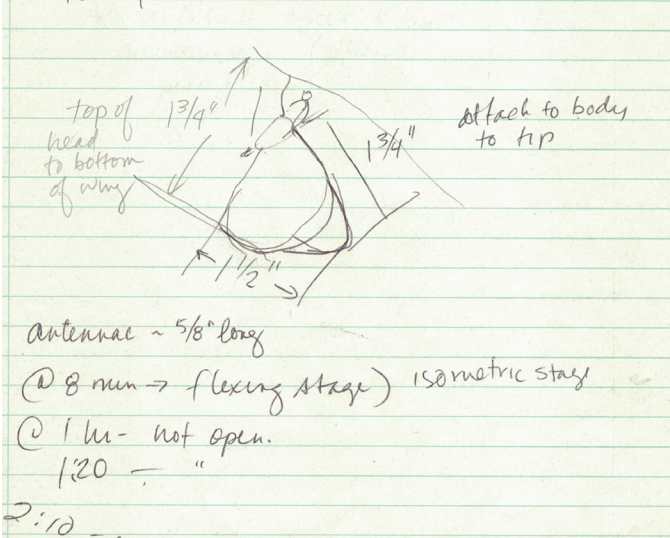 top of
head
to bottom
of wing
1 3/4"
1 3/4"
attach to body
to tip
1 1/2"
antennae ~ 5/8" long
@ 8 min → flexing stage) isometric stage
@ 1 hr - not open.
1:20 — "
2:10